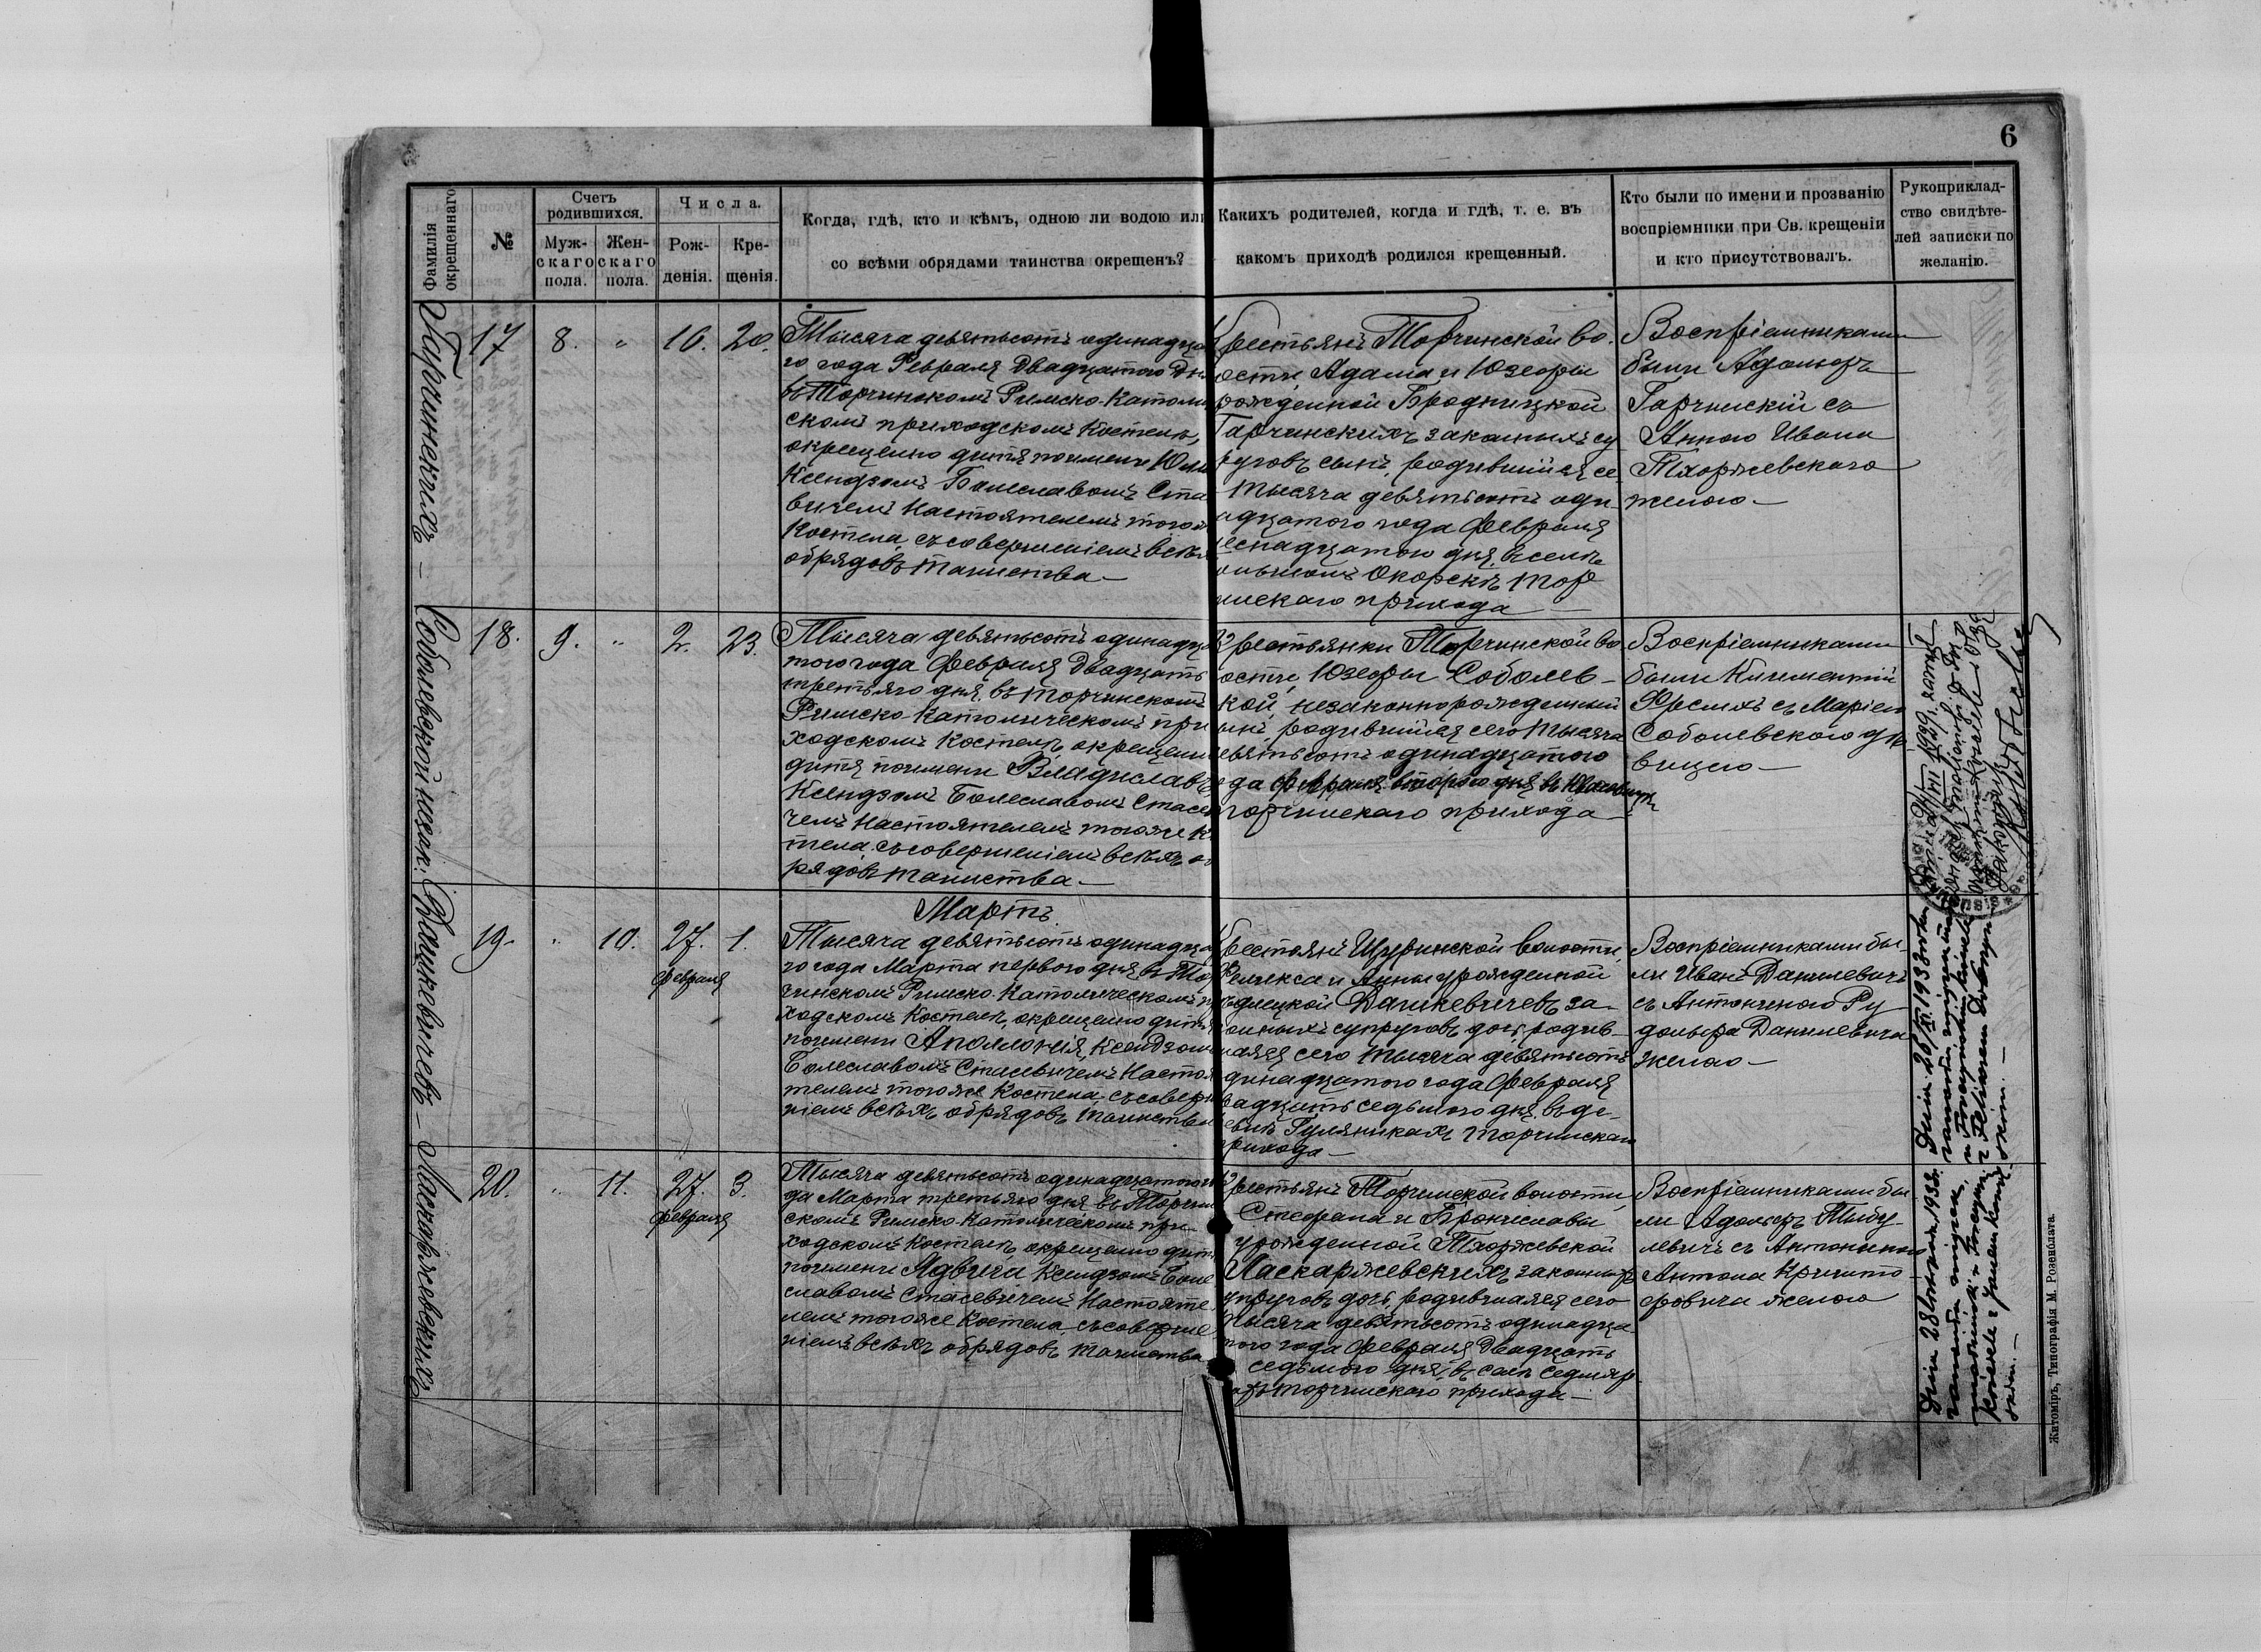 6
Фамилія окрещеннаго
№
Счетъ родившихся.
Муж-
скаго
пола.
Жен-
скаго
пола.
Числа.
Рож-
денія.
Кре-
щенія.
Когда, гдѣ, кто и кѣмъ, одною ли водою или
со всѣми обрядами таинства окрещенъ?
Какихъ родителей, когда и гдѣ, т. е. въ
какомъ приходѣ родился крещенный.
Кто были по имени и прозванію
воспріемники при Св. крещеніи
и кто присутствовалъ.
Рукоприклад-
ство свидѣте-
лей записки по
желанію.
Гарчинскихъ
17
8.
"
16.
20.
Тысяча девятьсотъ одинадца
го года Февраля Двадцатого Дня
въ Торчинскомъ Римско-Католи
скомъ приходскомъ Костелѣ,
окрещено дитя поимени Юли
Ксендзомъ Болеславомъ Ста
вичемъ Настоятелемъ того
Костела, съ совершеніемъ всѣхъ
обрядовъ таинства —
Крестьянъ Торчинской во.
ости, Адама и Юзефы
рожденной Бродницкой
Гарчинскихъ законныхъ су
руговъ сынъ, родившійся се
тысяча девятьсотъ оди
адцатого года Февраля
еснадцатого дня, в селѣ
Окорскъ Тор
инскаго прихода —
Воспріемниками
были Адольфъ
Гарчинскій съ
Анною Ивана
Тхоржевскаго
женою —
Соболевской
18.
9.
"
2.
23.
Тысяча девятьсотъ одинадца
того года Февраля Двадцать
третьяго дня, въ Торчинскомъ
Римско-Католическомъ при
ходскомъ Костелѣ, окрещено
дитя поимени Владиславъ,
Ксендзомъ Болеславомъ Стасе
чемъ Настоятелемъ тогоже К
тела, съ совершеніемъ всѣхъ о
рядовъ таинства —
Крестьянки Торчинской во
ости, Юзефы Соболев-
кой, незаконнорожденный
ынъ, родившійся сего тысяча
евятьсотъ одинадцатого
ода Февраля второго дня, въ
Торчинскаго прихода —
Воспріемниками
были Климентій
съ Маріею
Соболевского дѣ
вицею —
Дашкевичевъ —
19.
"
10.
27.
Февраля
1.
Мартъ.
Тысяча девятьсотъ одинадца
го года Марта первого дня, въ Тор
чинскомъ Римско-Католическомъ п
ходскомъ Костелѣ, окрещено дитя
поимени Аполлонія, Ксендзомъ
Болеславомъ Стасевичемъ Насто
телемъ тогоже Костела, съ соверш
ніемъ всѣхъ обрядовъ таинства
Крестьянъ Щуринской волости,
Феликса и Анны урожденной
Дашкевичевъ за-
онныхъ супруговъ дочь, родив-
аяся сего тысяча девятьсотъ
динадцатого года Февраля
вадцать седьмого дня, въ де-
Гуляникахъ Торчинскаго
рихода —
Воспріемниками бы-
ли Иванъ Данилевичъ
съ Антониною Ру
дольфа Данилевича
женою —
Ласкаржевскихъ
20.
"
11.
27.
Февраля
3.
Тысяча девятьсотъ одинадцатого
да Марта третьяго дня, въ Торчин
скомъ Римско-Католическомъ при-
ходскомъ Костелѣ, окрещено дитя
поимени Ядвига, Ксендзомъ Боле
славомъ Стасевичемъ Настояте
лемъ тогоже Костела, съ соверше
ніемъ всѣхъ обрядовъ таинства
Крестьянъ Торчинской волости,
Стефана и Брониславы
урожденной Тхоржевской
Ласкаржевскихъ законныхъ
упруговъ дочь, родившаяся сего
тысяча девятьсотъ одинадца
того года Февраля Двадцать
седьмого дня, въ селѣ
Торчинскаго прихода —
Воспріемниками бы
ли Адольфъ
съ Антониною
Антона
женою
Житоміръ, Типографія М. Розенблата.